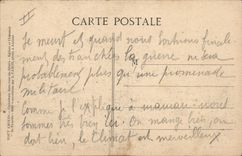 CARTE POSTALE
III
Je meurt et quand nous sortirons finale-
ment des tranchées la guerre ne sera
probablement plus qu'une promenade
militaire.
Comme je l'explique à maman nous
sommes très bien ici. On mange bien, on
dort bien, le climat est merveilleux